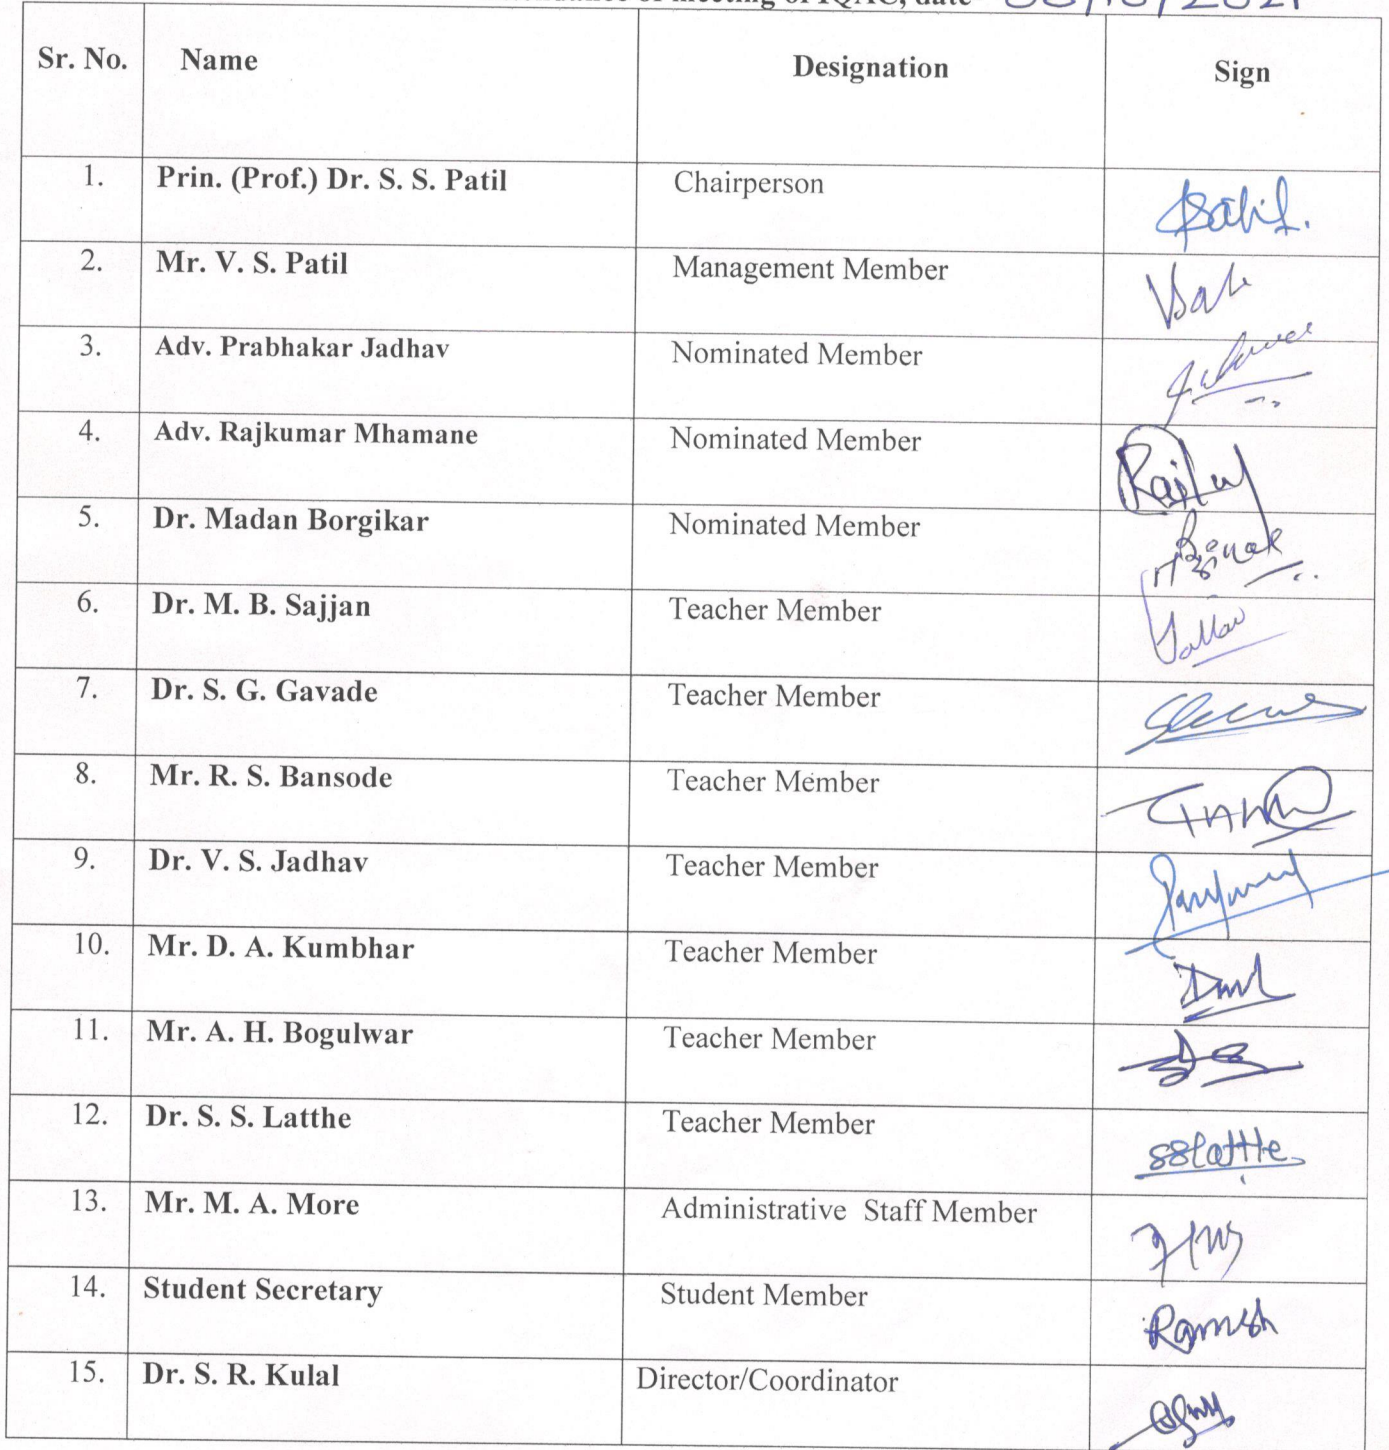 meeting of IQAC, date
Sr. No. Name Designation Sign
1. Prin. (Prof.) Dr. S. S. Patil Chairperson
2. Mr. V. S. Patil Management Member
3. Adv. Prabhakar Jadhav Nominated Member
4. Adv. Rajkumar Mhamane Nominated Member
5. Dr. Madan Borgikar Nominated Member
6. Dr. M. B. Sajjan Teacher Member
7. Dr. S. G. Gavade Teacher Member
8. Mr. R. S. Bansode Teacher Member
9. Dr. V. S. Jadhav Teacher Member
10. Mr. D. A. Kumbhar Teacher Member
11. Mr. A. H. Bogulwar Teacher Member
12. Dr. S. S. Latthe Teacher Member sslatthe
13. Mr. M. A. More Administrative Staff Member
14. Student Secretary Student Member Ramesh
15. Dr. S. R. Kulal Director/Coordinator